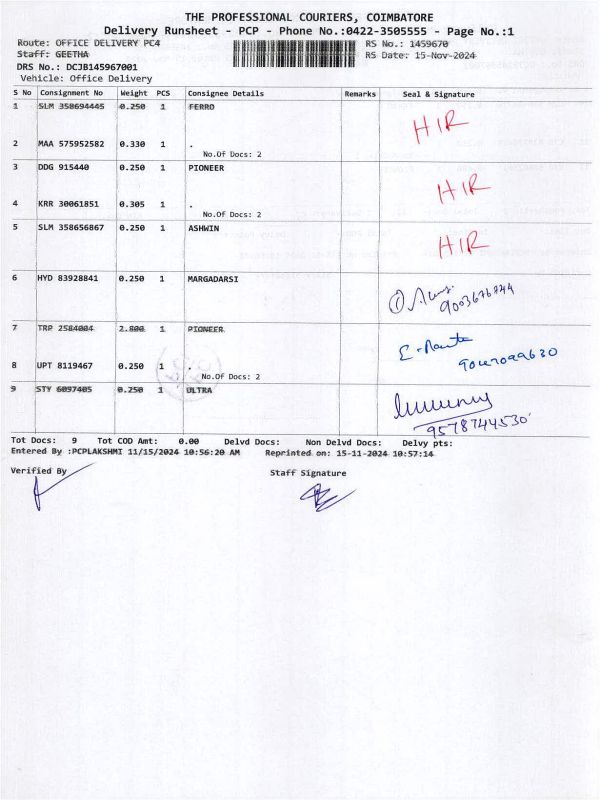 THE PROFESSIONAL COURIERS, COIMBATORE
Delivery Runsheet - PCP - Phone No.:0422-3505555 - Page No.:1
Route: OFFICE DELIVERY PC4 RS No.: 1459670
Staff: GEETHA RS Date: 15-Nov-2024
DRS No.: DCJB145967001
Vehicle: Office Delivery
S No Consignment No Weight PCS Consignee Details Remarks Seal & Signature
1 SLM 358694445 0.250 1 FERRO
HIR
2 MAA 575952582 0.330 1 .
No.Of Docs: 2
3 DDG 915440 0.250 1 PIONEER
HIR
4 KRR 30061851 0.305 1 .
No.Of Docs: 2
5 SLM 358656867 0.250 1 ASHWIN
HIR
6 HYD 83928841 0.250 1 MARGADARSI
7 TRP 2584004 2.800 1 PIONEER
8 UPT 8119467 0.250 1 .
No.Of Docs: 2
9 STY 6097405 0.250 1 ULTRA
9578744530
Tot Docs: 9 Tot COD Amt: 0.00 Delvd Docs: Non Delvd Docs: Delvy pts:
Entered By :PCPLAKSHMI 11/15/2024 10:56:20 AM Reprinted on: 15-11-2024 10:57:14
Verified By Staff Signature